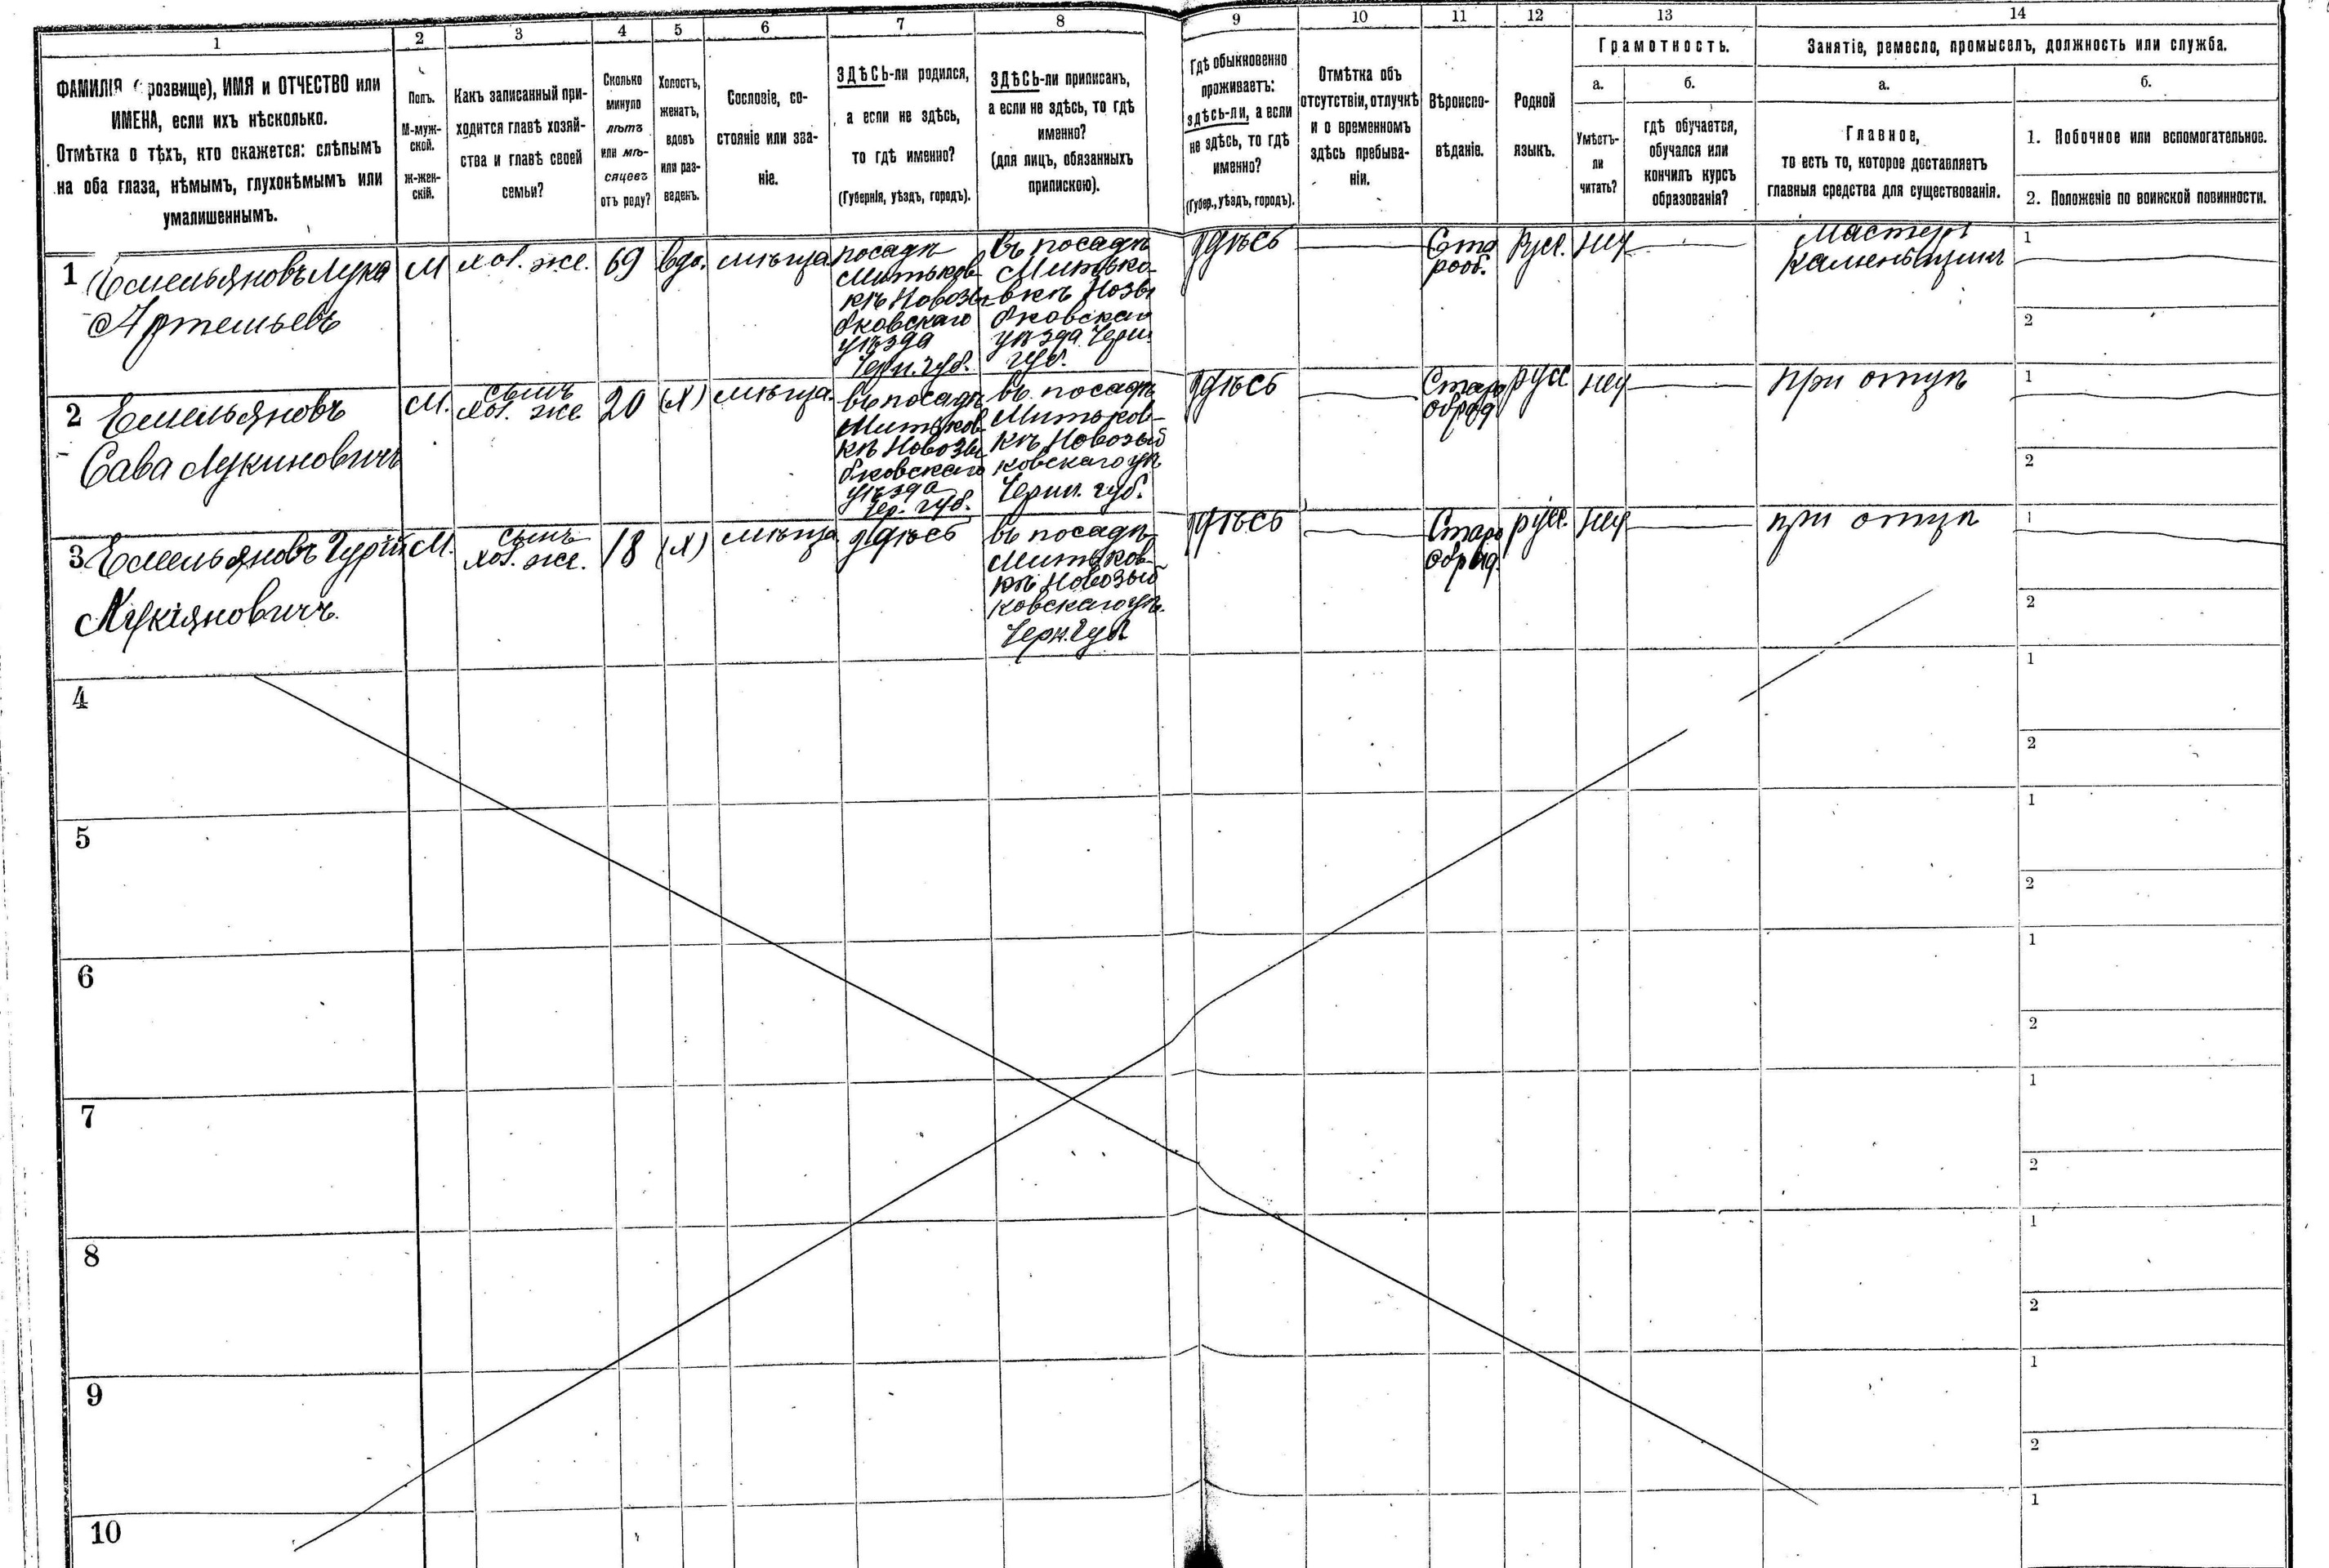 1 2 3 4 5 6 7 8 9 10 11 12 13 14
ФАМИЛІЯ (розвище), ИМЯ и ОТЧЕСТВО или
ИМЕНА, если ихъ нѣсколько.
Отмѣтка о тѣхъ, кто окажется: слѣпымъ
на оба глаза, нѣмымъ, глухонѣмымъ или
умалишеннымъ.
Полъ.
М-муж-
ской.
ж-жен-
скій.
Какъ записанный при-
ходится главѣ хозяй-
ства и главѣ своей
семьи?
Сколько
минуло
лѣтъ
или мѣ-
сяцевъ
отъ роду?
Холостъ,
женатъ,
вдовъ
или раз-
веденъ.
Сословіе, со-
стояніе или зва-
ніе.
ЗДѢСЬ-ли родился,
а если не здѣсь,
то гдѣ именно?
(Губернія, уѣздъ, городъ).
ЗДѢСЬ-ли приписанъ,
а если не здѣсь, то гдѣ
именно?
(для лицъ, обязанныхъ
припискою).
Гдѣ обыкновенно
проживаетъ:
здѣсь-ли, а если
не здѣсь, то гдѣ
именно?
(Губер., уѣздъ, городъ).
Отмѣтка объ
отсутствіи, отлучкѣ
и о временномъ
здѣсь пребыва-
ніи.
Вѣроиспо-
вѣданіе.
Родной
языкъ.
Грамотность.
а.
Умѣетъ-
ли
читать?
б.
гдѣ обучается,
обучался или
кончилъ курсъ
образованія?
Занятіе, ремесло, промыселъ, должность или служба.
а.
Главное,
то есть то, которое доставляетъ
главныя средства для существованія.
б.
1. Побочное или вспомогательное.
2. Положеніе по воинской повинности.
1 Емельяновъ Лука
Артемьевъ
М
хоз. же.
69
вдо.
мѣща.
посадѣ
Митьков-
кѣ Новозы
бковскаго
уѣзда
Черн. губ.
въ посадѣ
Митько-
вкѣ Нозы
бковскаго
уѣзда Черн.
губ.
здѣсь
Ста
рооб.
русс.
нет
Мастеръ
каменьщикъ
1
2
2 Емельяновъ
Сава Лукиновичъ
М.
сынъ
хоз. же
20
(Х)
мѣща.
въ посадѣ
Митьков-
кѣ Новозы
бковскаго
уѣзда
Чер. губ.
въ посадѣ
Митьков-
кѣ Новозыб
ковскаго уѣ
Черн. губ.
здѣсь
Старо
обряд
русс
нет
при отцѣ
1
2
3 Емельяновъ Гурій
Лукіяновичъ.
М.
сынъ
хоз. же.
18
(Х)
мѣща
здѣсь
въ посадѣ
Митьков-
кѣ Новозыб
ковскаго уѣ.
Черн. губ
здѣсь
Старо
обряд.
русс.
нет
при отцѣ
1
2
4
1
2
5
1
2
6
1
2
7
1
2
8
1
2
9
1
2
10
1